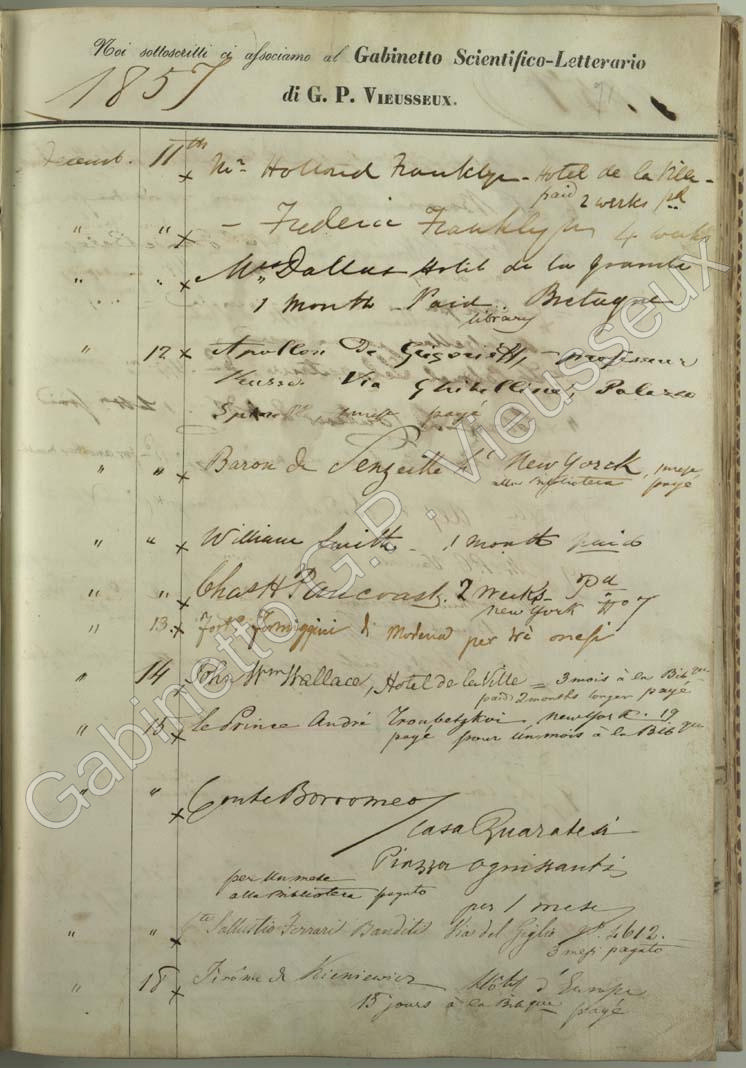 Noi sottoscritti ci associamo al Gabinetto Scientifico-Letterario
1857
di G. P. VIEUSSEUX.
Decemb. 11th x Mr. Holland Franklyn - Hotel de la Ville -
paid 2 weeks pd
" " x - Frederic Franklyn 4 weeks
" " x Mrs Dallas Hotel de la Grande
1 month - Paid. Bretagne
library
" 12 x Apollon de professeur
Russe Via Ghibellina, Palazzo
payé
" " x Baron de New Yorck, 1 mese
alla Biblioteca payé
" " x William Smith - 1 month paid
" " x Chas H Pancoast. 2 Weeks - Pd
New York No 7
" 13 x Formiggini di Modena per tre mesi
" 14 x John Wm Wallace, Hotel de la Ville = 3 mois à la Bibque
paid 2 months longer payé
" 15 x le Prince André Troubetzkoi, New York. 19
payé pour un mois à la Bibque
" " x Conte Borromeo
Casa Quaratesi
Piazza Ognissanti
per un mese
alla Biblioteca pagato
per 1 mese
" " x Cte Sallustio Ferrari Banditi Via del Giglio No. 4612.
3 mesi pagato
" 18 x Jérôme de Kieniewicz Hôtel d'Europe
15 jours à la Bibque payé
Gabinetto G.P. Vieusseux